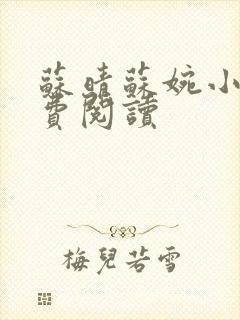 蘇晴蘇婉小
費閱讀
梅兒若雪